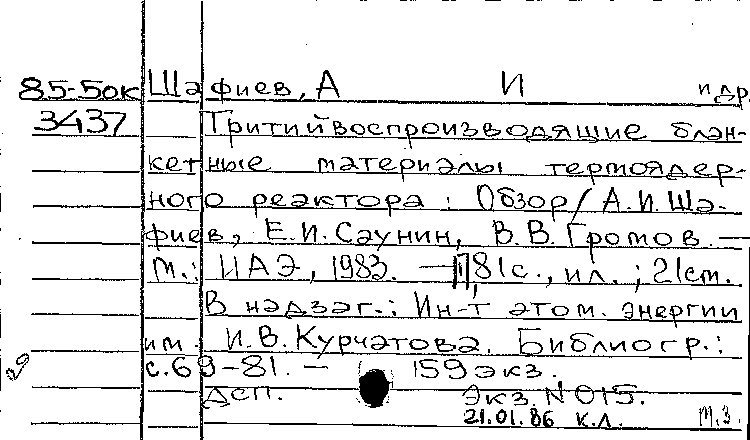 85-5ок Шафиев, А И и др.
3437 Тритийвоспроизводящие блан-
кетные материалы термоядер-
ного реактора : Обзор/ А.И. Ша-
фиев, Е.И. Саунин, В.В. Громов. —
М.: ИАЭ, 1983. — 81с., ил. ; 21см.
В надзаг.: Ин-т атом. энергии
им. И.В. Курчатова. Библиогр.:
с.69-81. — 159 экз.
ДСП. Экз. N 015.
21.01.86 к.л. М.З.
29